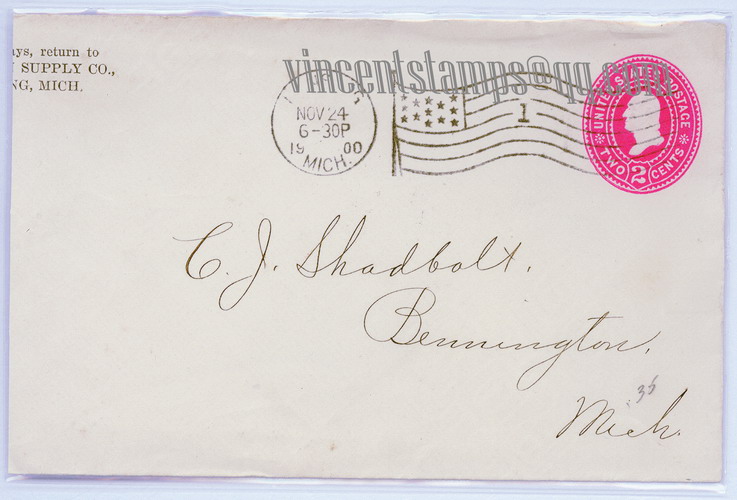 ys, return to
SUPPLY CO.,
NG, MICH.
vincentstamps@qq.com
NOV 24
6-30P
19 00
MICH.
1
UNITED STATES POSTAGE
TWO 2 CENTS
C. J. Shadbolt.
Bennington.
36
Mich.